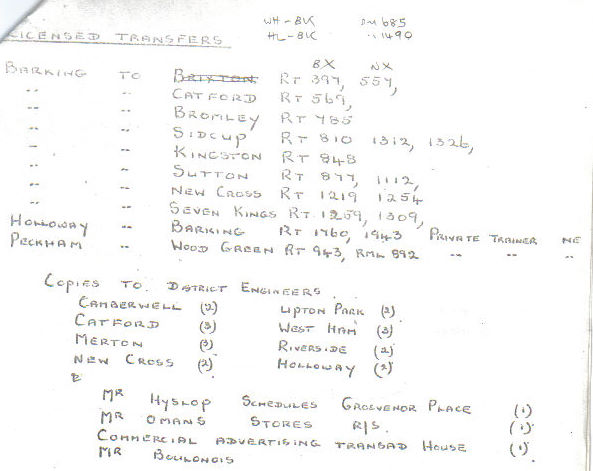 WH - BK SM 685
HL - BK " 1490
LICENSED TRANSFERS
BX NX
BARKING TO BRIXTON RT 397, 557,
" " CATFORD RT 569,
" " BROMLEY RT 785
" " SIDCUP RT 810 1312, 1326,
" " KINGSTON RT 848
" " SUTTON RT 877, 1112,
" " NEW CROSS RT 1219 1254
" " SEVEN KINGS RT 1259, 1309,
HOLLOWAY " BARKING RT 1760, 1943 PRIVATE TRAINER NE
PECKHAM " WOOD GREEN RT 943, RML 892 " " "
COPIES TO DISTRICT ENGINEERS
CAMBERWELL (2) UPTON PARK (2)
CATFORD (3) WEST HAM (3)
MERTON (3) RIVERSIDE (2)
NEW CROSS (2) HOLLOWAY (2)
MR HYSLOP SCHEDULES GROSVENOR PLACE (1)
MR OMANS STORES R/S. (1)
COMMERCIAL ADVERTISING TRANSAD HOUSE (1)
MR BOULONOIS